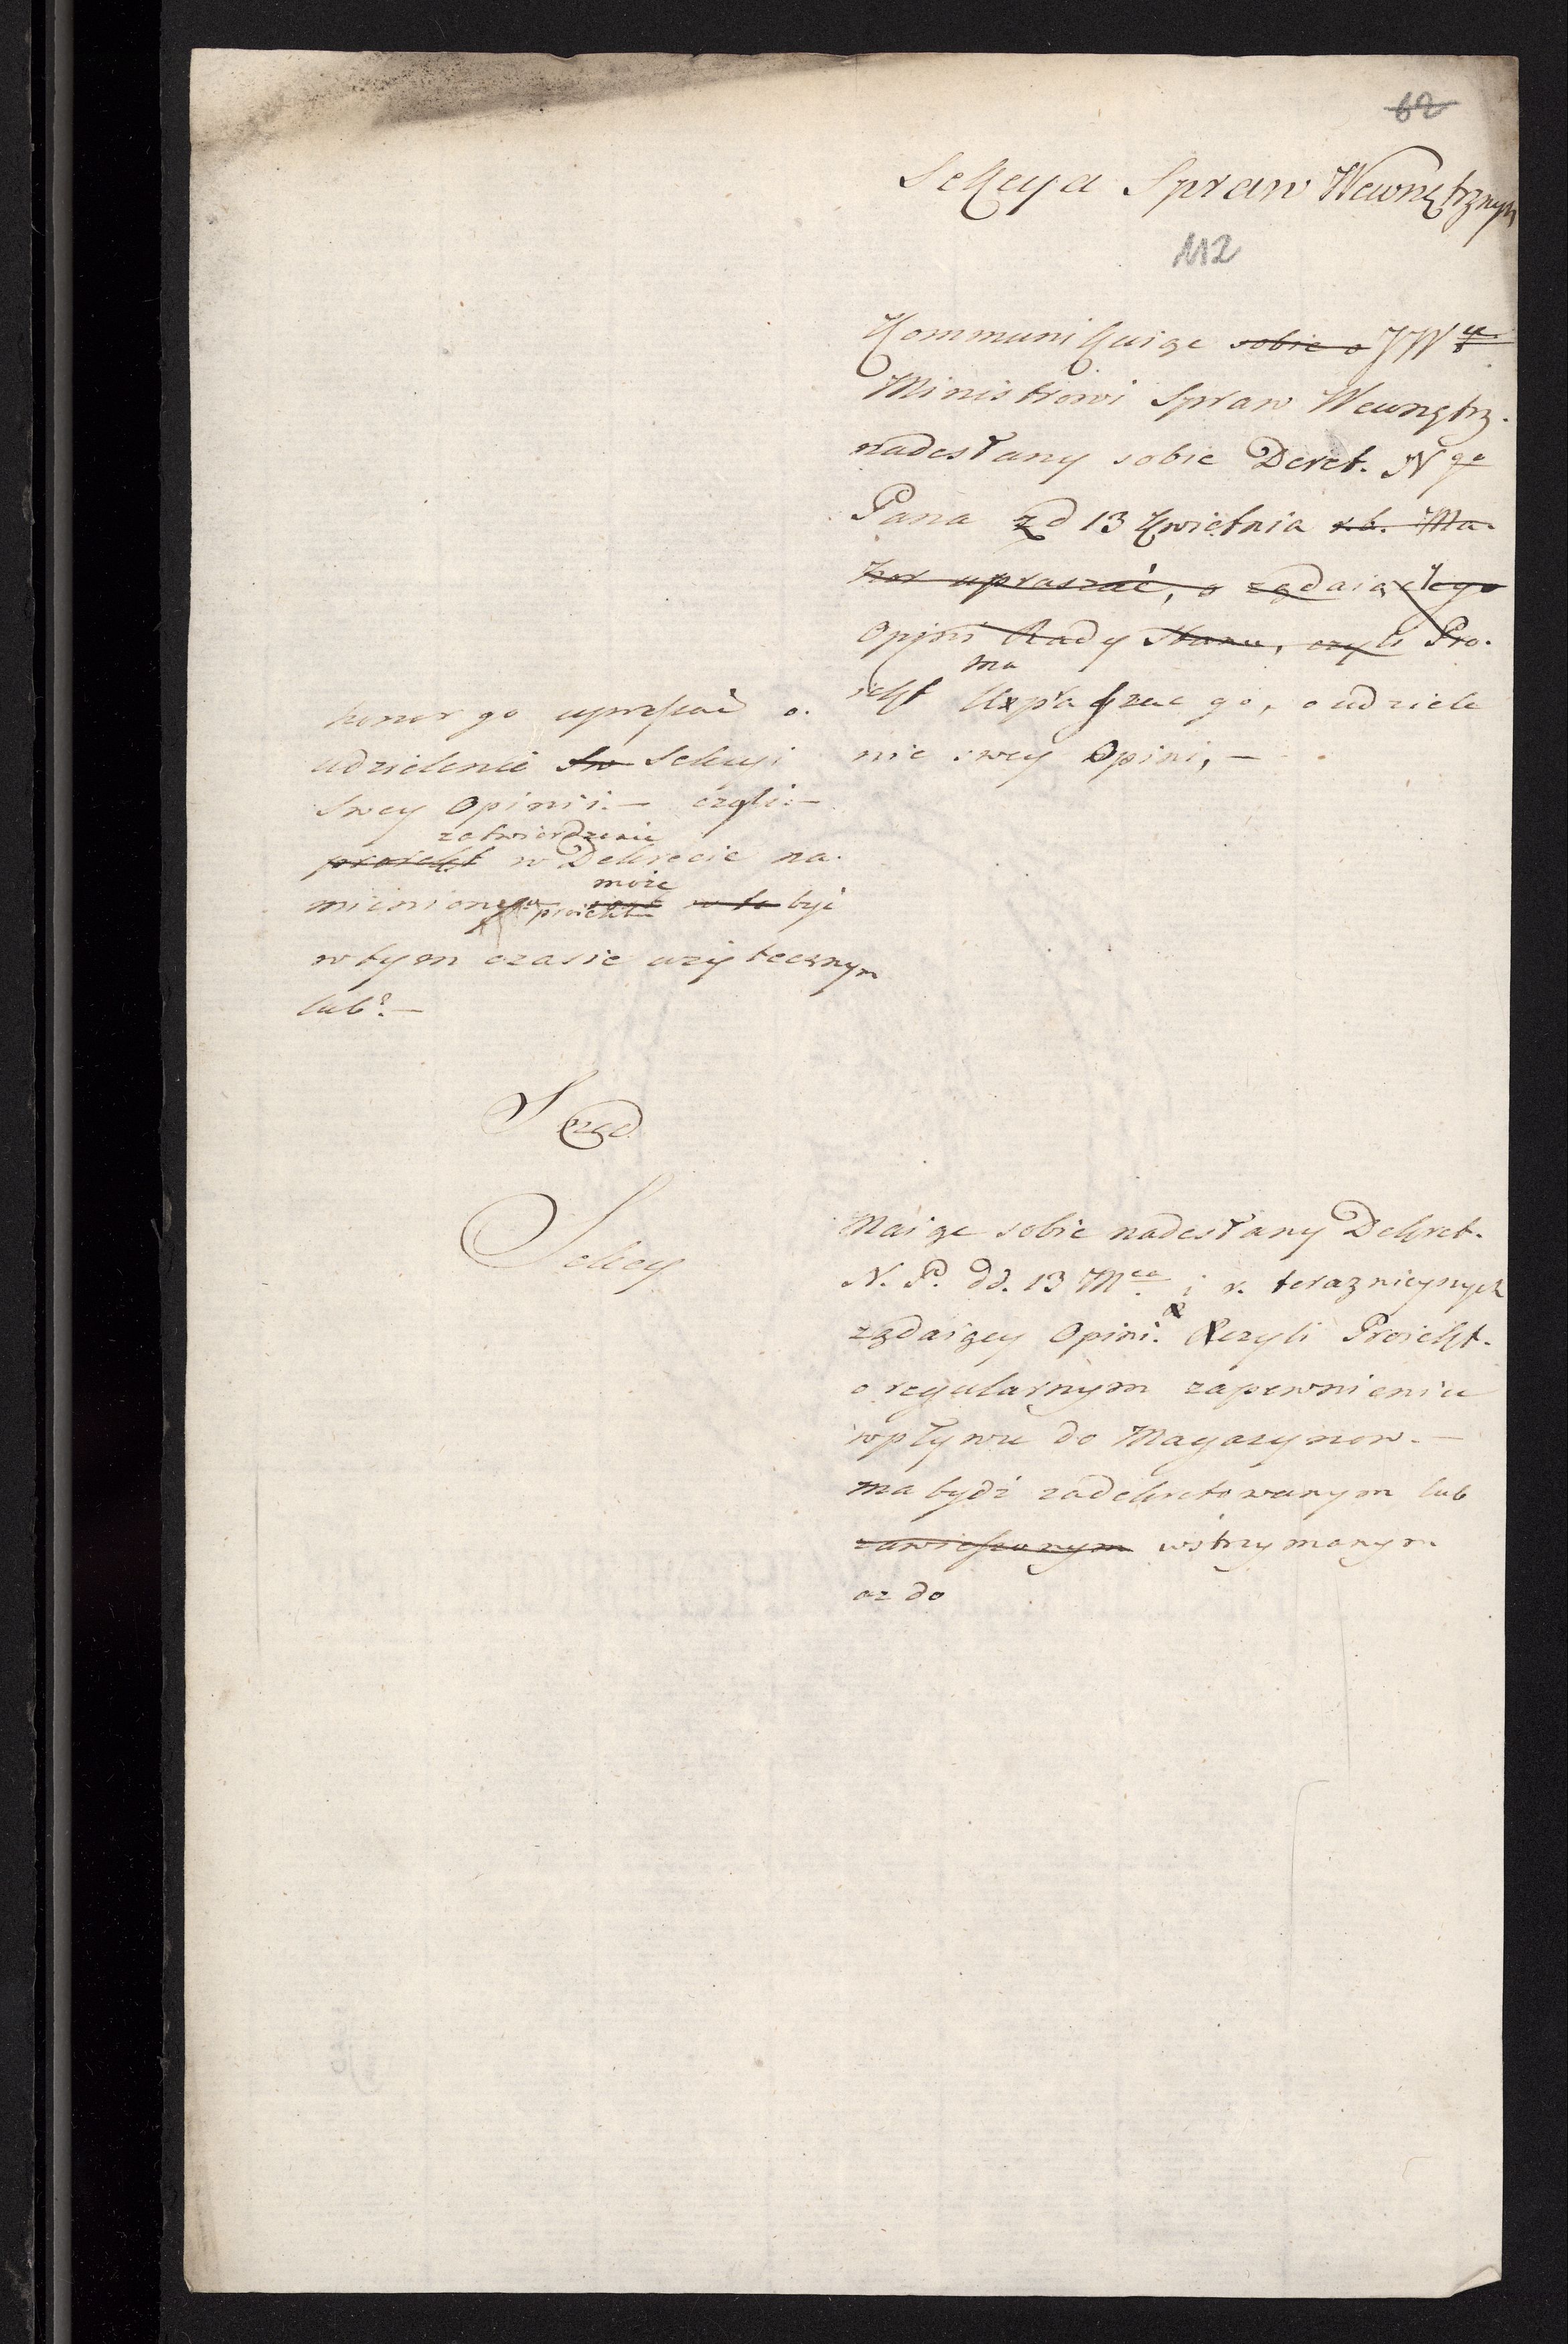 62
Sekcya Spraw Wewnętrznych
112
Kommunikuiąc sobie o JW
Ministrowi Spraw Wewnętrz.
nadesłany sobie Deret. Ngo
Pana zd 13 Kwietnia r.b. Ma
upraszać, o żądaiącego
Opini Rady Stanu, czyli Pro-
iekt ma Upraszać go, o udziele
nie swey Opini, —
honor go upraszać o.
udzielenie Sw Sekcyi
Swey Opinii. — czyli. —
zatwierdzenie
proiekt w Dekrecie na-
może
mienionego proiektu w to być
w tym czasie użytecznym
lub. —
Sekcy
Maiąc sobie nadesłany Dekret.
N. P. dd. 13 Mca i r. teraznieyszych
ządaiącey Opini. czyli Proiekt.
o regularnym zapewnieniu
wpływu do Magazynow. —
ma bydź zadekretowanym lub
zawieszonym wstrzymanym
az do